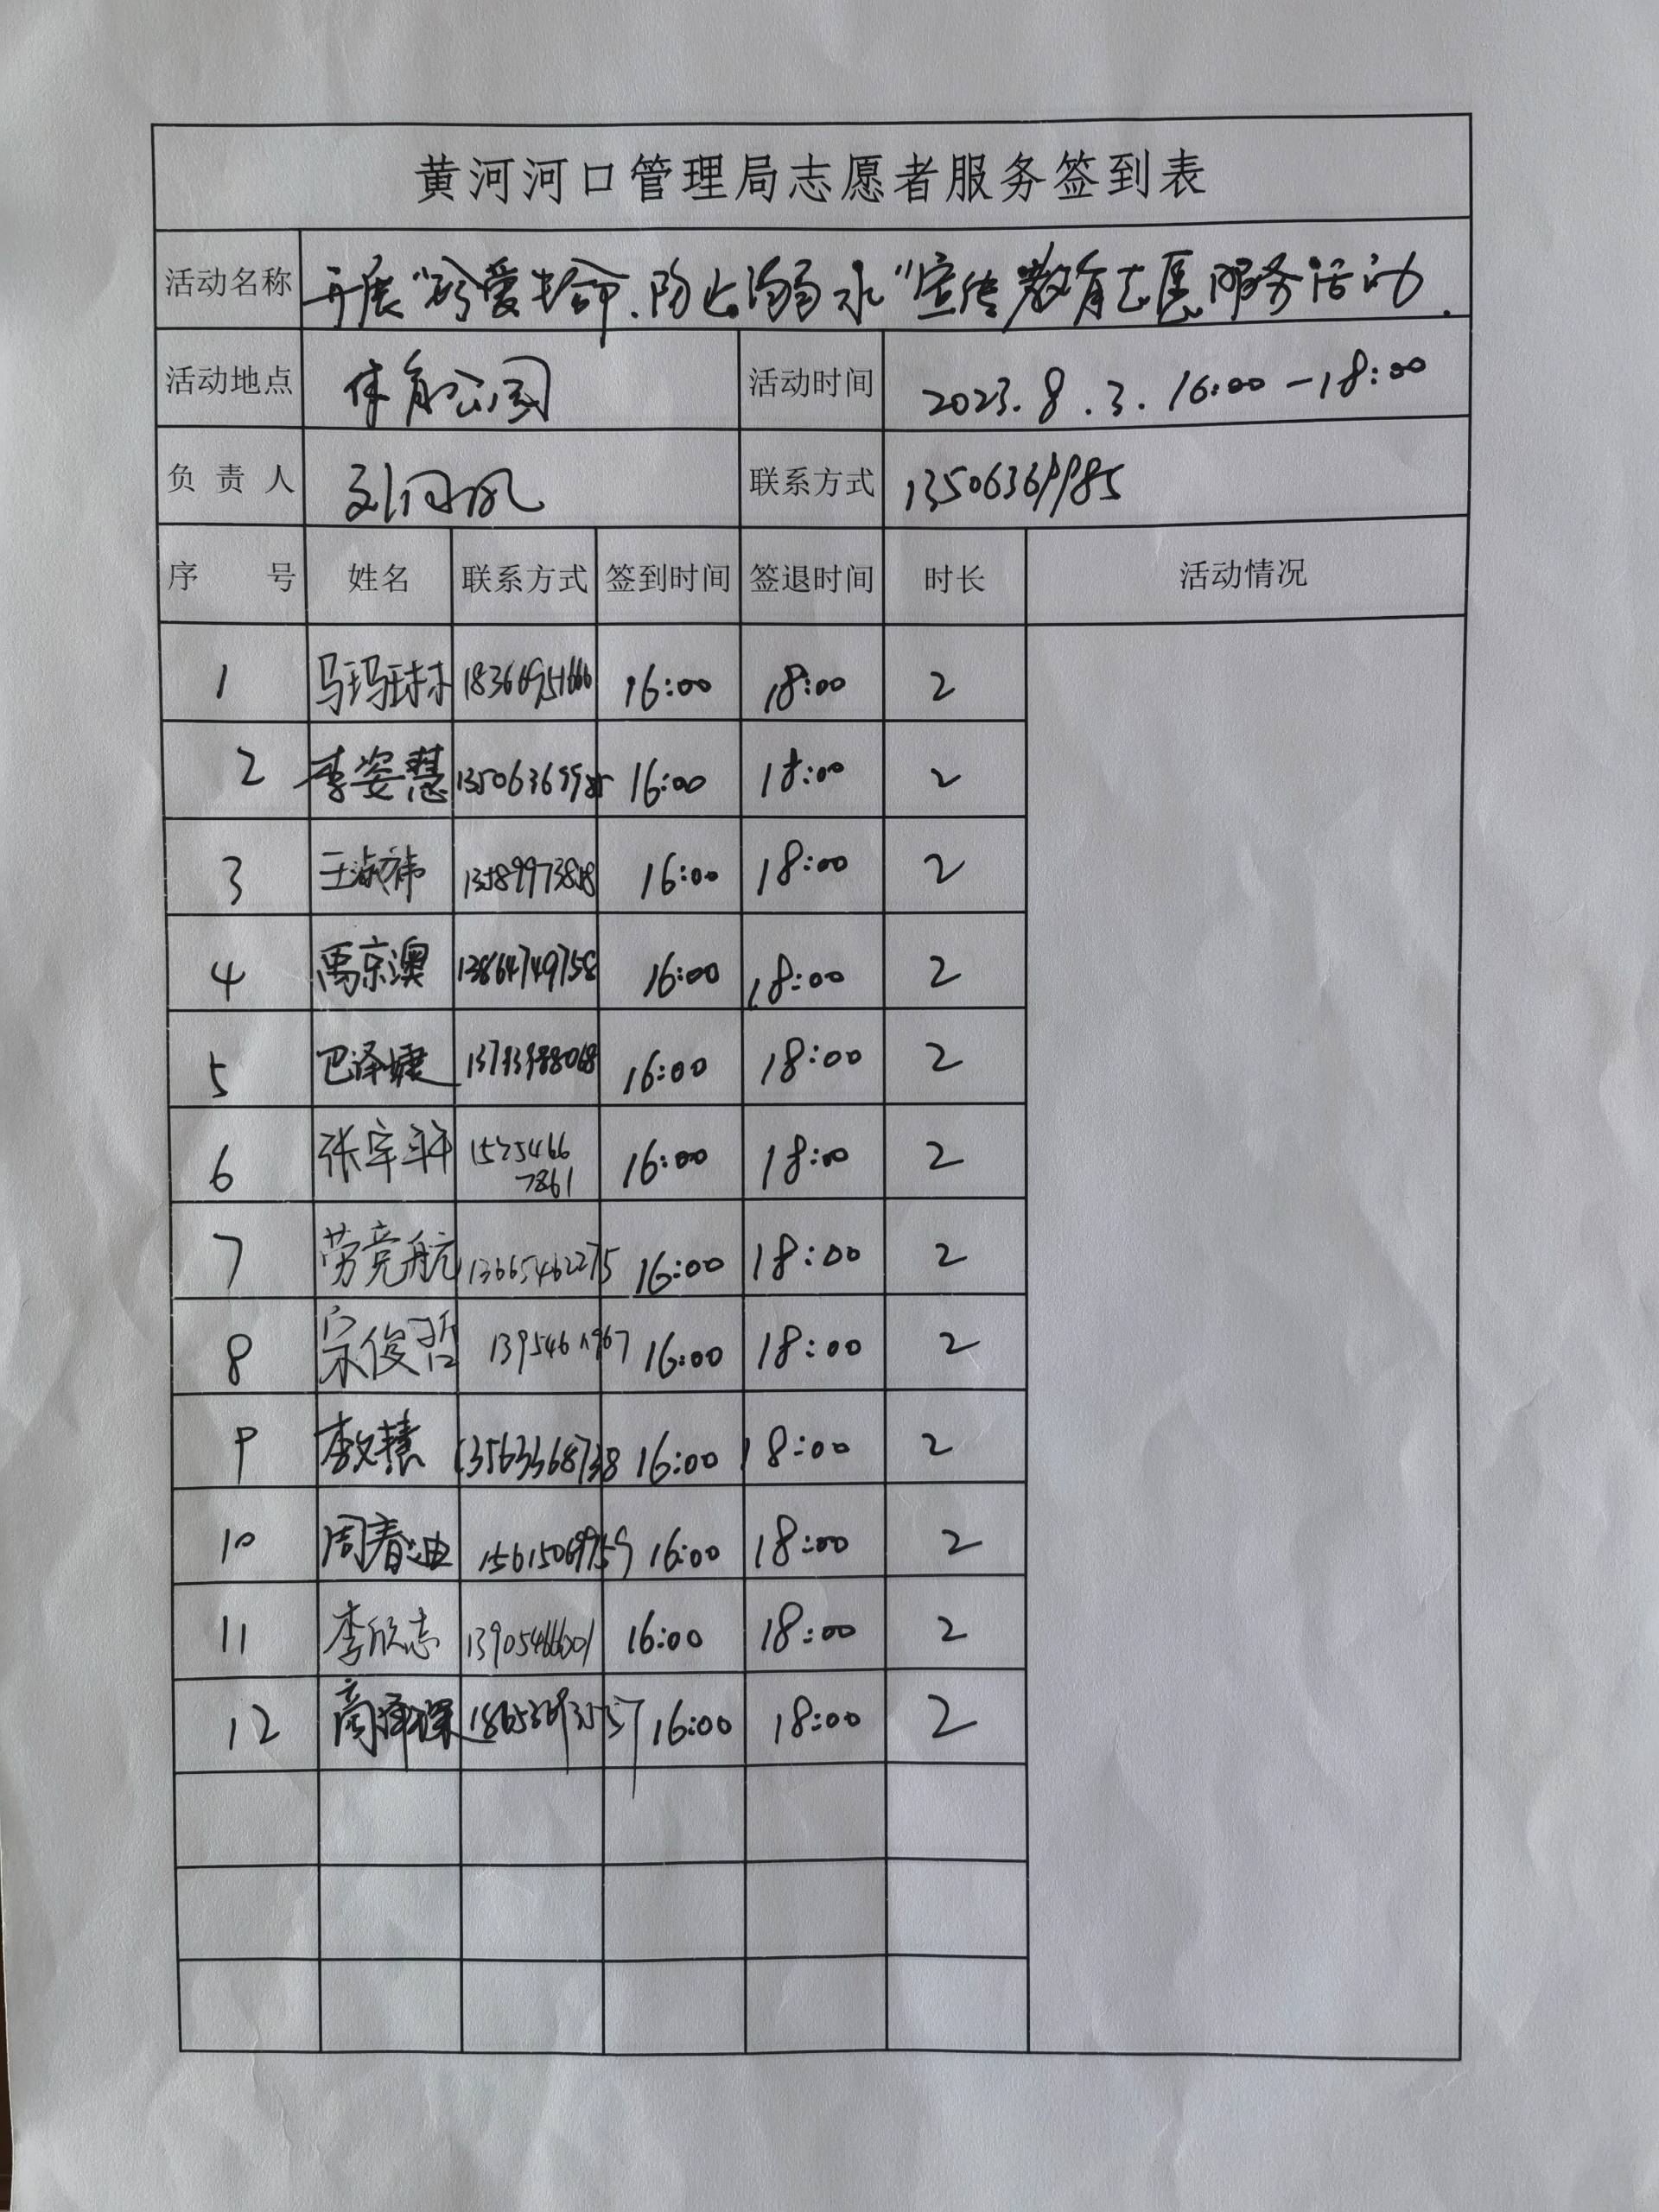 黄河河口管理局志愿者服务签到表
活动名称 开展“珍爱生命.防止溺水”宣传教育志愿服务活动.
活动地点 体育公园 活动时间 2023.8.3.16:00-18:00
负责人 联系方式 13506369985
序号 姓名 联系方式 签到时间 签退时间 时长 活动情况
1 马玛琳 18366951666 16:00 18:00 2
2 李姿慧 16:00 18:00 2
3 王淑祎 16:00 18:00 2
4 禹京澳 13864749758 16:00 18:00 2
5 巴泽婕 16:00 18:00 2
6 张宇轩 16:00 18:00 2
7 劳竞航 13665462275 16:00 18:00 2
8 宗俊哲 16:00 18:00 2
9 李文慧 13563368738 16:00 18:00 2
10 周春迪 15615069759 16:00 18:00 2
11 李欣志 13905466601 16:00 18:00 2
12 16:00 18:00 2